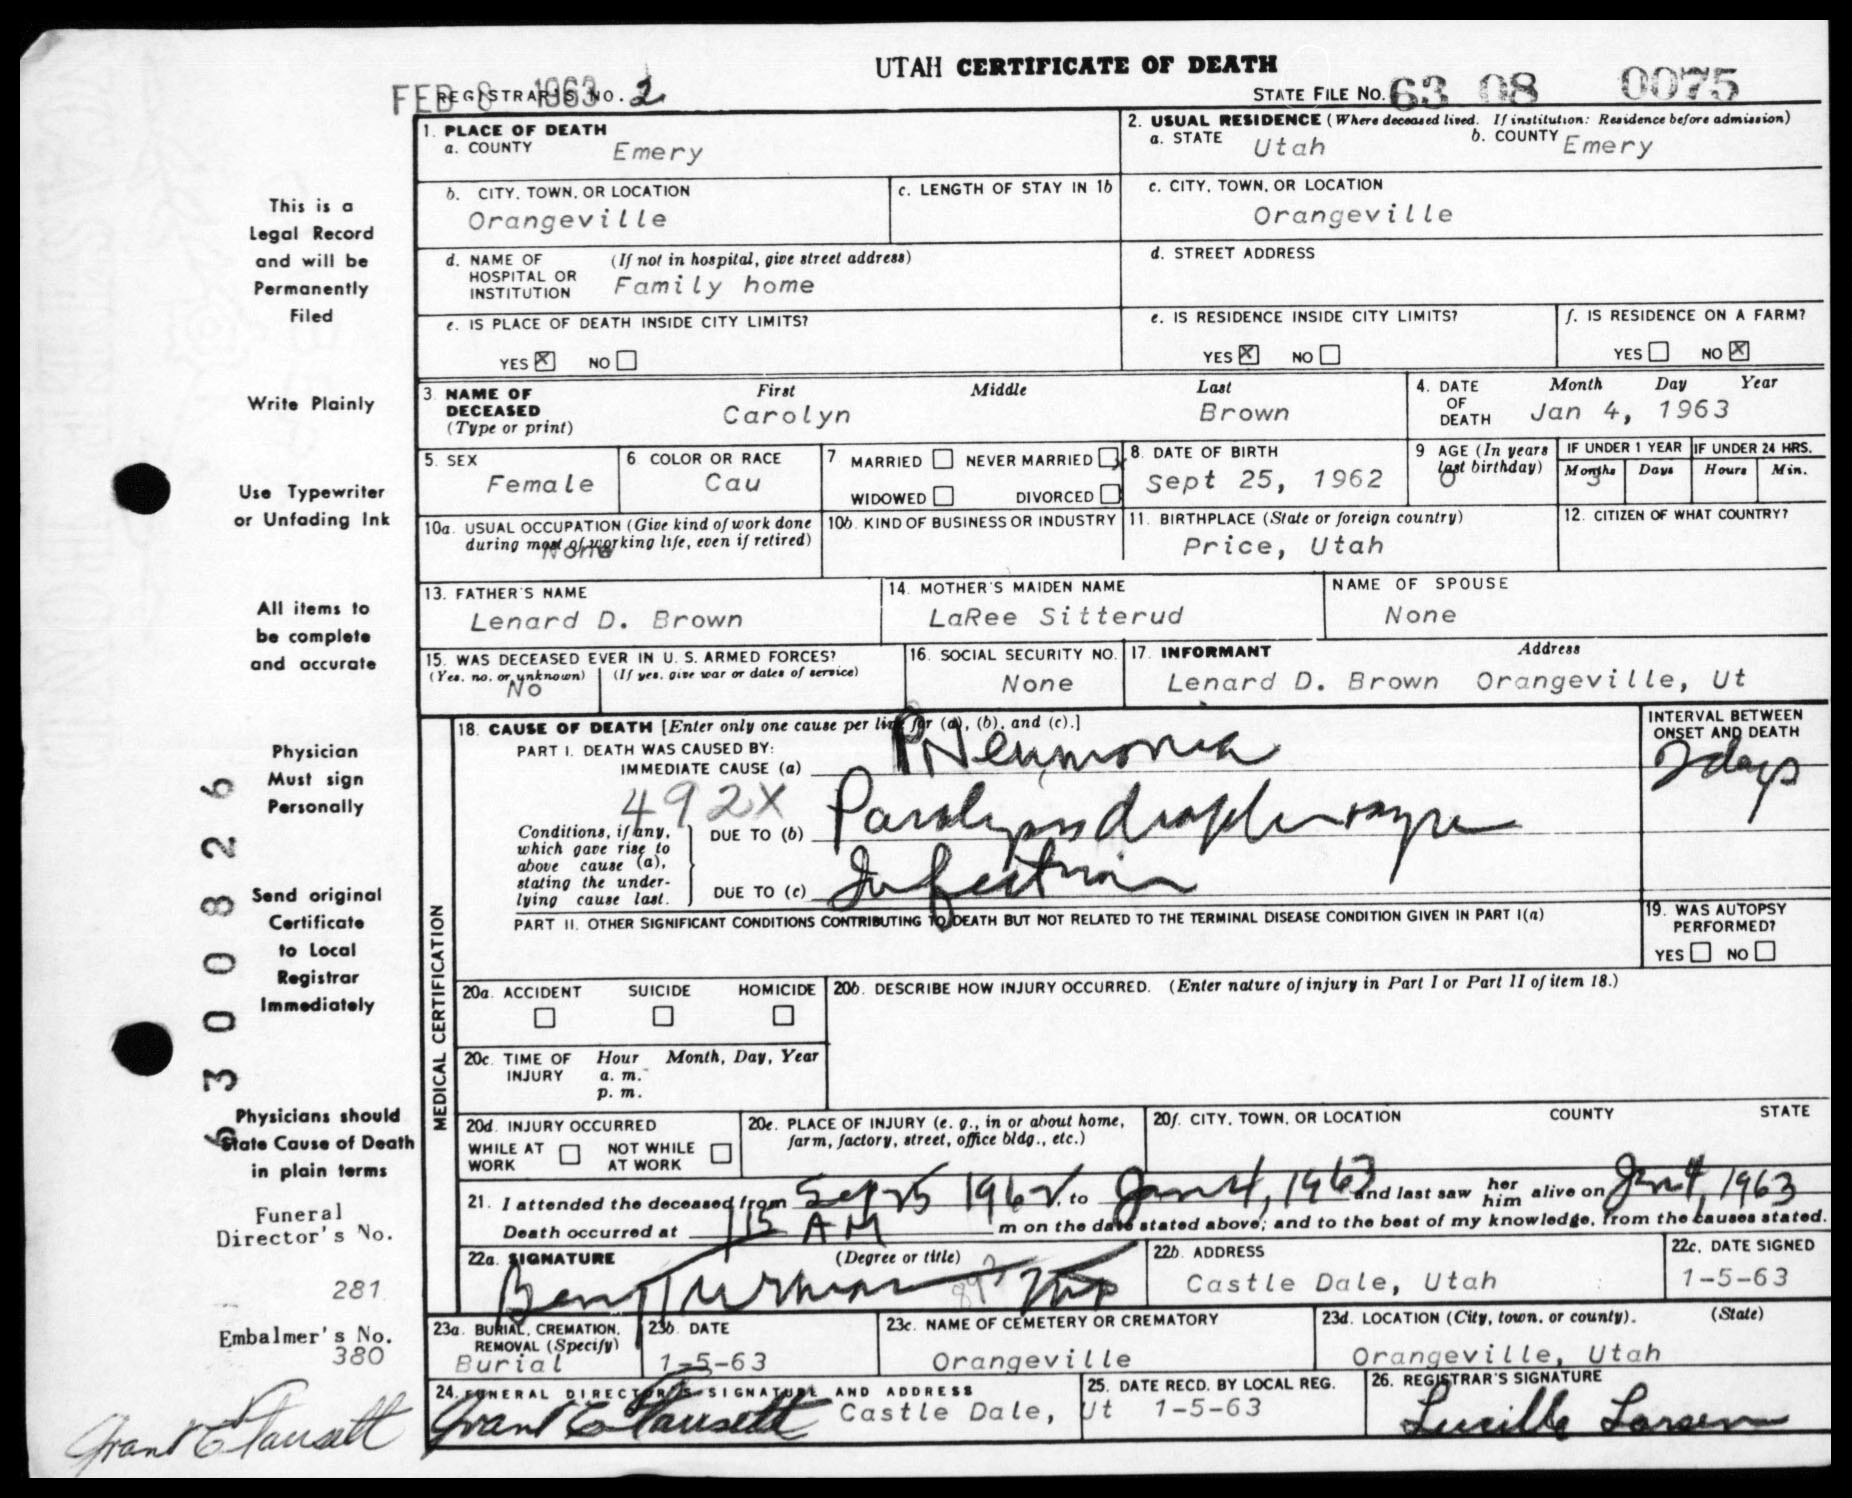 UTAH CERTIFICATE OF DEATH
FEB 8 1963
REGISTRAR'S NO. 2
STATE FILE NO. 63 08 0075
This is a
Legal Record
and will be
Permanently
Filed
Write Plainly
Use Typewriter
or Unfading Ink
All items to
be complete
and accurate
Physician
Must sign
Personally
Send original
Certificate
to Local
Registrar
Immediately
Physicians should
State Cause of Death
in plain terms
Funeral
Director's No.
281
Embalmer's No.
380
Grant E Fausett
63008326
1. PLACE OF DEATH
a. COUNTY Emery
2. USUAL RESIDENCE (Where deceased lived. If institution: Residence before admission)
a. STATE Utah b. COUNTY Emery
b. CITY, TOWN, OR LOCATION
Orangeville
c. LENGTH OF STAY IN 1b
c. CITY, TOWN, OR LOCATION
Orangeville
d. NAME OF HOSPITAL OR INSTITUTION (If not in hospital, give street address)
Family home
d. STREET ADDRESS
e. IS PLACE OF DEATH INSIDE CITY LIMITS?
YES X NO
e. IS RESIDENCE INSIDE CITY LIMITS?
YES X NO
f. IS RESIDENCE ON A FARM?
YES NO X
3. NAME OF DECEASED (Type or print)
First Middle Last
Carolyn Brown
4. DATE OF DEATH Month Day Year
Jan 4, 1963
5. SEX
Female
6. COLOR OR RACE
Cau
7. MARRIED NEVER MARRIED X
WIDOWED DIVORCED
8. DATE OF BIRTH
Sept 25, 1962
9 AGE (In years last birthday)
0
IF UNDER 1 YEAR IF UNDER 24 HRS.
Months Days Hours Min.
3
10a. USUAL OCCUPATION (Give kind of work done during most of working life, even if retired)
None
10b. KIND OF BUSINESS OR INDUSTRY
11. BIRTHPLACE (State or foreign country)
Price, Utah
12. CITIZEN OF WHAT COUNTRY?
13. FATHER'S NAME
Lenard D. Brown
14. MOTHER'S MAIDEN NAME
LaRee Sitterud
NAME OF SPOUSE
None
15. WAS DECEASED EVER IN U.S. ARMED FORCES?
(Yes, no, or unknown) (If yes, give war or dates of service)
No
16. SOCIAL SECURITY NO.
None
17. INFORMANT Address
Lenard D. Brown Orangeville, Ut
MEDICAL CERTIFICATION
18. CAUSE OF DEATH [Enter only one cause per line for (a), (b), and (c).]
PART I. DEATH WAS CAUSED BY:
IMMEDIATE CAUSE (a) Pneumonia
INTERVAL BETWEEN ONSET AND DEATH
2 days
492X
Conditions, if any, which gave rise to above cause (a), stating the underlying cause last.
DUE TO (b)
DUE TO (c)
PART II. OTHER SIGNIFICANT CONDITIONS CONTRIBUTING TO DEATH BUT NOT RELATED TO THE TERMINAL DISEASE CONDITION GIVEN IN PART I(a)
19. WAS AUTOPSY PERFORMED?
YES NO
20a. ACCIDENT SUICIDE HOMICIDE
20b. DESCRIBE HOW INJURY OCCURRED. (Enter nature of injury in Part I or Part II of item 18.)
20c. TIME OF INJURY Hour Month, Day, Year
a. m.
p. m.
20d. INJURY OCCURRED
WHILE AT WORK NOT WHILE AT WORK
20e. PLACE OF INJURY (e. g., in or about home, farm, factory, street, office bldg., etc.)
20f. CITY, TOWN, OR LOCATION COUNTY STATE
21. I attended the deceased from Sept 25 1962, to Jan 4, 1963 and last saw her him alive on Jan 4, 1963
Death occurred at 1 15 AM m on the date stated above; and to the best of my knowledge, from the causes stated.
22a. SIGNATURE (Degree or title)
22b. ADDRESS
Castle Dale, Utah
22c. DATE SIGNED
1-5-63
23a. BURIAL, CREMATION, REMOVAL (Specify)
Burial
23b. DATE
1-5-63
23c. NAME OF CEMETERY OR CREMATORY
Orangeville
23d. LOCATION (City, town, or county). (State)
Orangeville, Utah
24. FUNERAL DIRECTOR'S SIGNATURE AND ADDRESS
Grant E Fausett Castle Dale, Ut
25. DATE RECD. BY LOCAL REG.
1-5-63
26. REGISTRAR'S SIGNATURE
Lucille Larsen